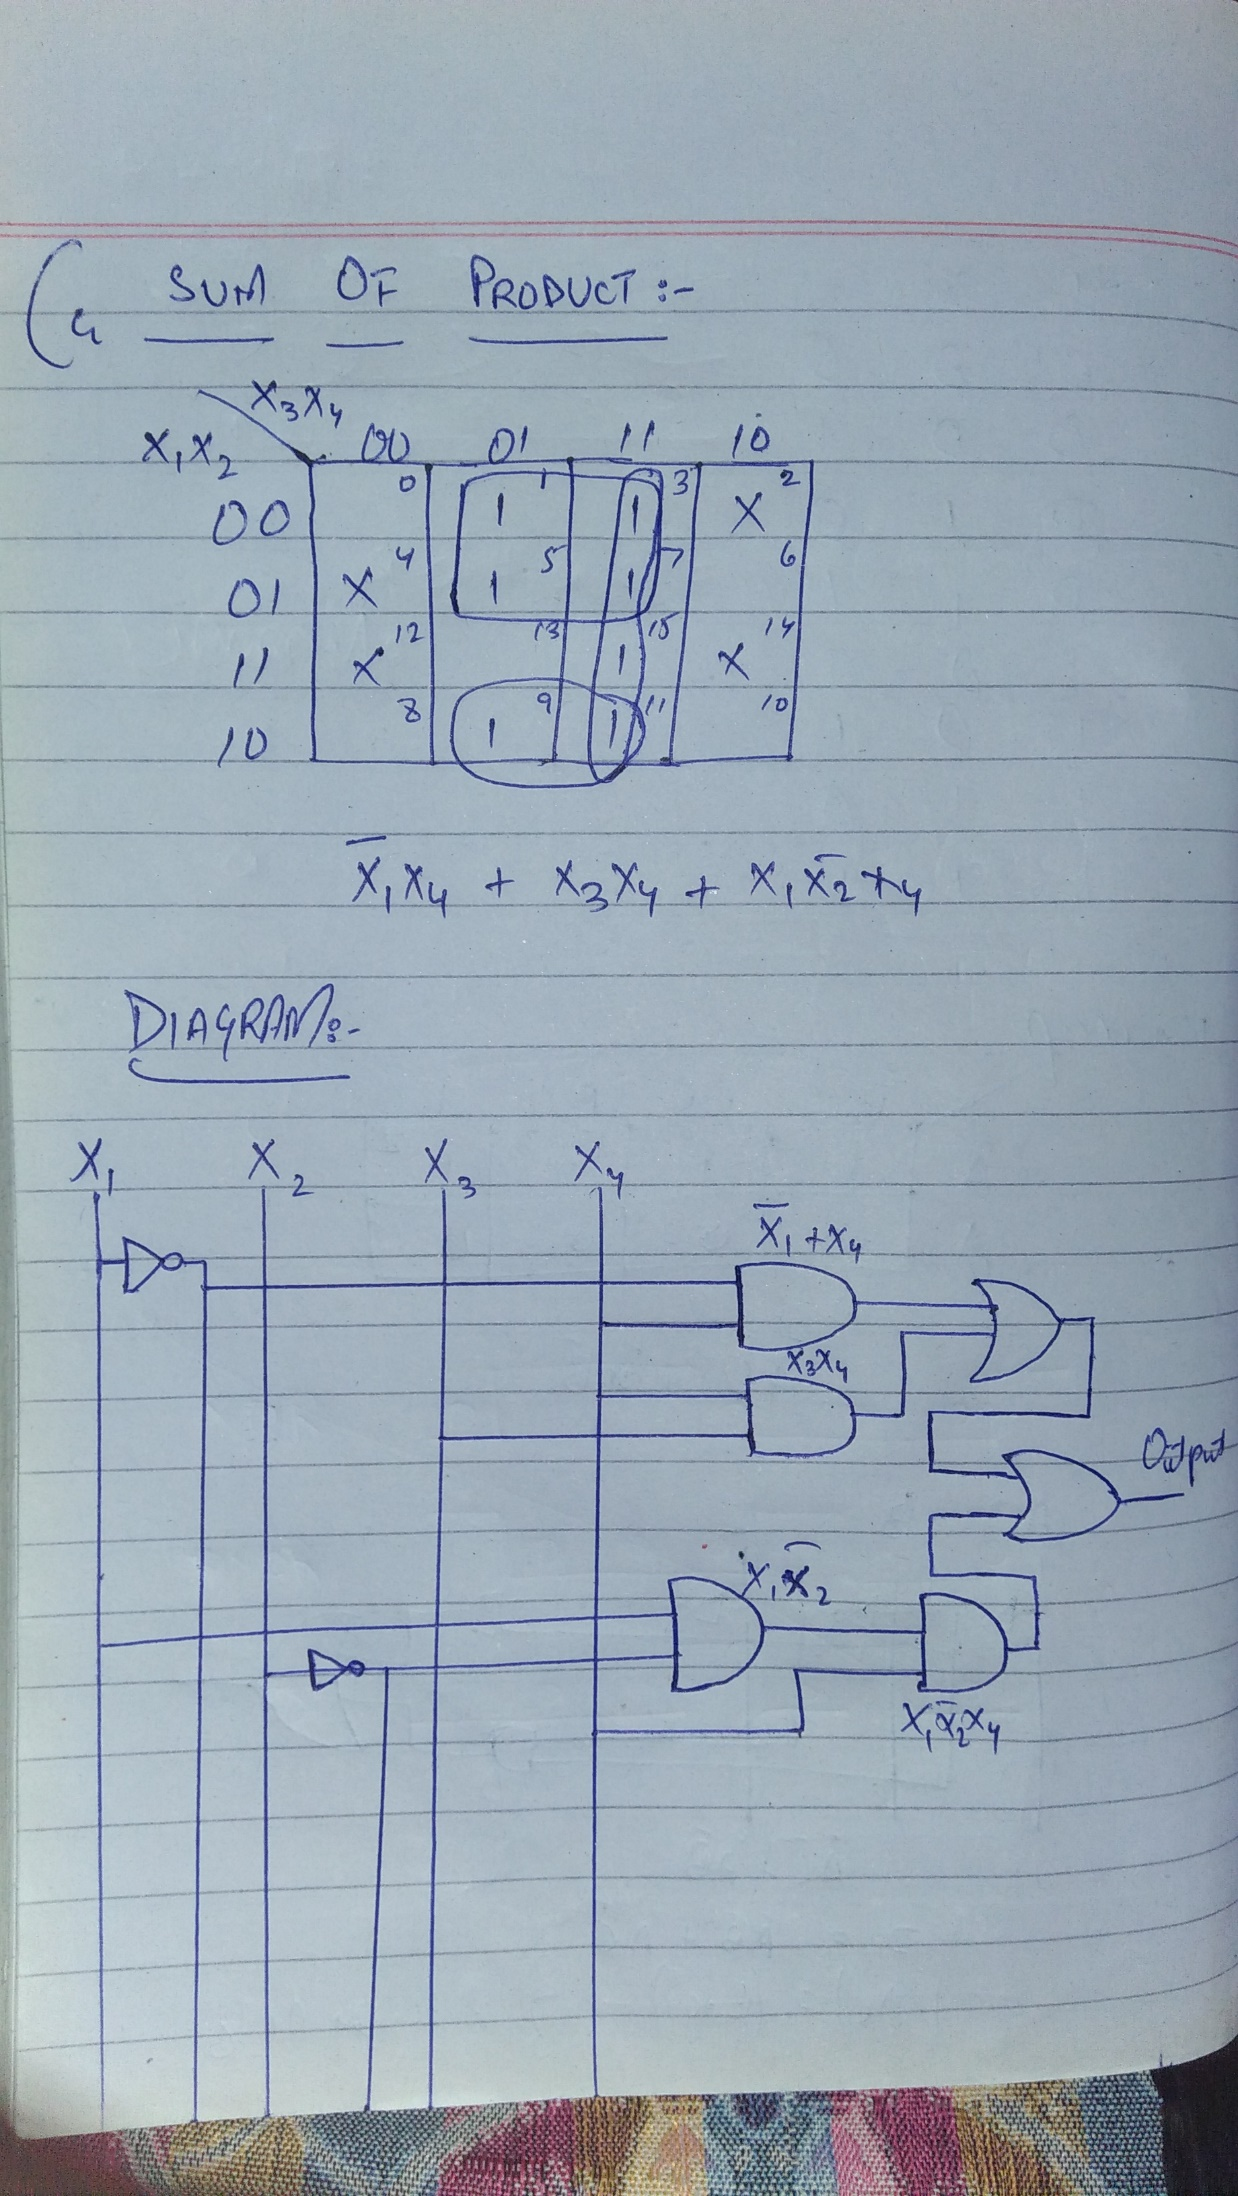 (4 SUM OF PRODUCT :-
X₃X₄
X₁X₂ 00 01 11 10
0 1 3 2
00 1 1 X
4 5 7 6
01 X 1 1
12 13 15 14
11 X 1 X
8 9 11 10
10 1 1
X̅₁X₄ + X₃X₄ + X₁X̅₂X₄
DIAGRAM:-
X₁ X₂ X₃ X₄
X̅₁+X₄
X₃X₄
Output
X₁X̅₂
X₁X̅₂X₄